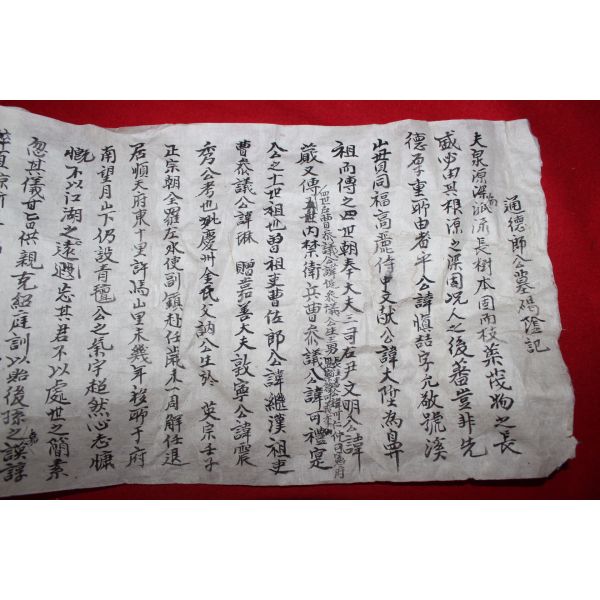 通德郎公墓碣陰記
夫泉源深流長樹本固而枝葉茂物之長
盛必由其根源之深固況人之後蕃豈非先
德厚重所由者乎公諱慎喆字允敬號溪
山世貫同福高麗侍中文獻公諱大陞為鼻
祖而傳之四世朝奉大夫三司左尹文明公諱
嚴又傳內禁衛兵曹參議公諱可禮寔
公之十世祖也曾祖吏曹佐郎公諱繼漢祖吏
曹參議公諱淋贈嘉善大夫敦寧公諱震
秀公考也妣慶州金氏文訥公生於英宗壬子
正宗朝全羅左水使副鎮赴任歲未一周解任退
居順天府東十里許馬山里未幾年移所于府
南望月山下仍設青氈公之氣宇超然心志慷
慨不以江湖之遠遐忘其君不以處世之簡素
忽其儀甘旨供親克紹庭訓以貽後孫之謨諄